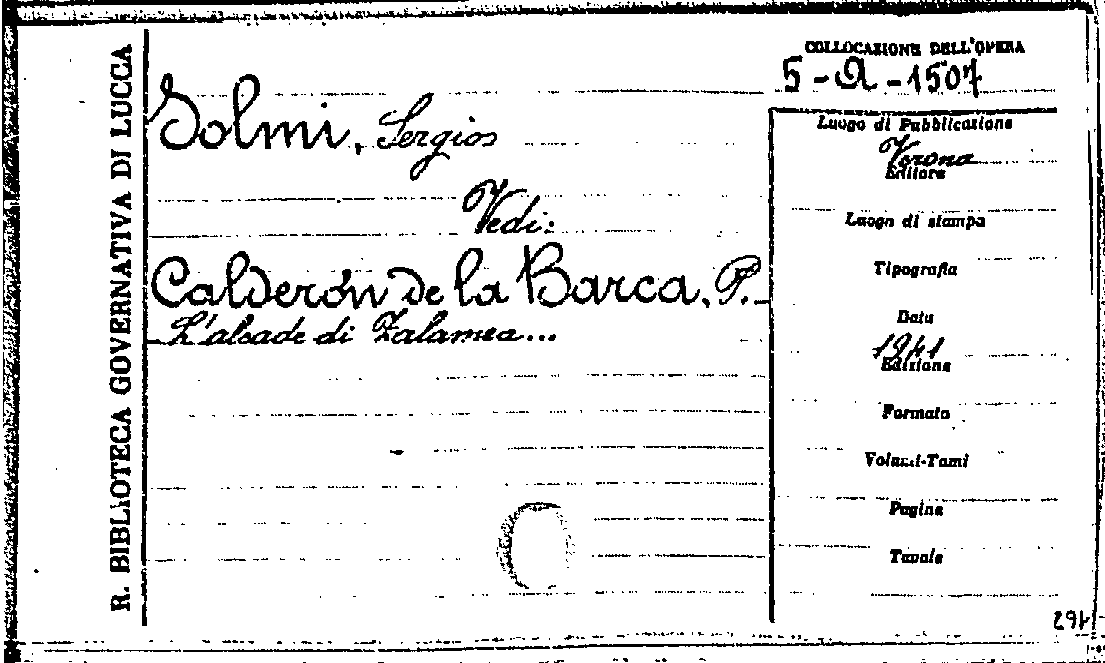 R. BIBLIOTECA GOVERNATIVA DI LUCCA
COLLOCAZIONE DELL'OPERA
5-A-1507
Solmi, Sergio
Vedi:
Calderón de la Barca, P.
L'alcade di Zalamea...
Luogo di Pubblicazione
Verona
Editore
Luogo di stampa
Tipografia
Data
1941
Edizione
Formato
Volumi-Tomi
Pagine
Tavole